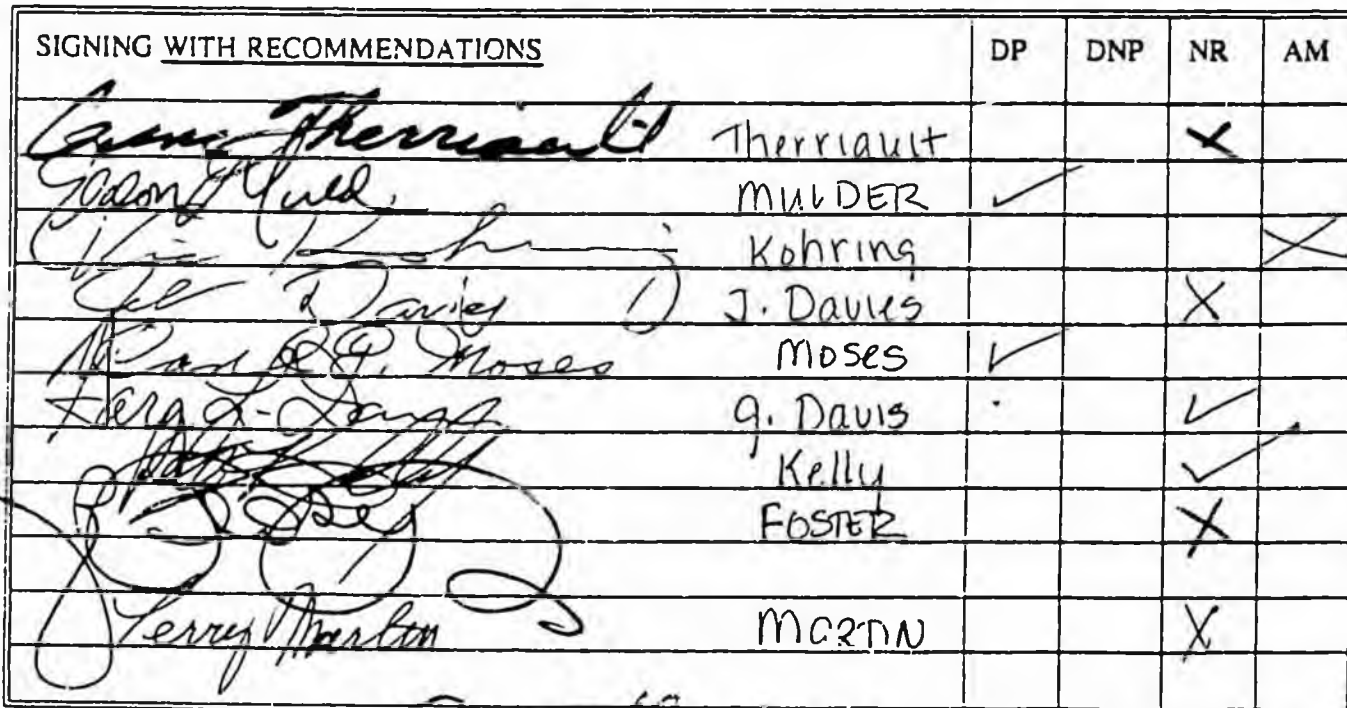 SIGNING WITH RECOMMENDATIONS DP DNP NR AM
Gene Therriault Therriault X
MULDER ✓
Vic Kohring Kohring X
J. Davies X
Moses Moses ✓
G. Davis ✓
Kelly ✓
FOSTER X
Terry Martin MARTIN X